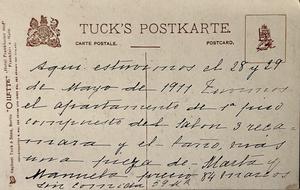 TUCK'S POSTKARTE.
CARTE POSTALE.
POSTCARD.
Aqui estuvimos el 28 y 29
de Mayo de 1911 Tuvimos
el apartamento de 1º piso
compuesto del salon 3 reca
mara y el bano, mas
una pieza de Marta y
Manuela precio 84 marcos
sin comida
"OILETTE"